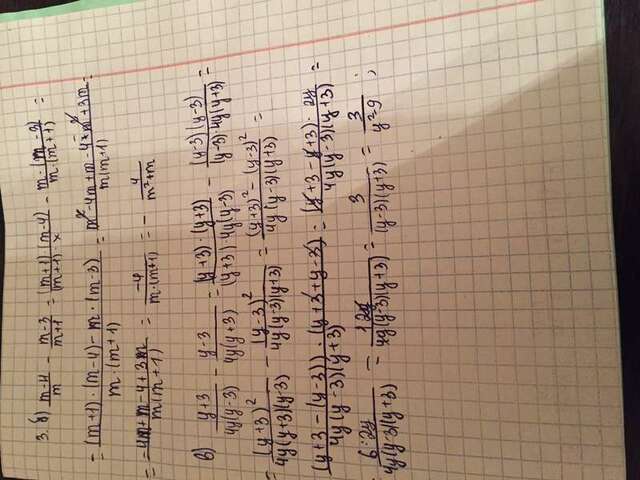 3. б) (m-4)/m - (m-3)/(m+1) = ((m+1)(m-4))/((m+1)·x) - (m·(m-3))/(m·(m+1)) =
= ((m+1)·(m-4) - m·(m-3))/(m·(m+1)) = (m²-4m+m-4-m²+3m)/(m(m+1)) =
= (-4m+m-4+3m)/(m(m+1)) = (-4)/(m·(m+1)) = - 4/(m²+m)
в) (y+3)/(4y(y-3)) - (y-3)/(4y(y+3)) = ((y+3)·(y+3))/((y+3)·4y(y-3)) - ((y-3)(y-3))/((y-3)·4y(y+3)) =
= (y+3)²/(4y(y+3)(y-3)) - (y-3)²/(4y(y-3)(y+3)) = ((y+3)²-(y-3)²)/(4y(y-3)(y+3)) =
= ((y+3-(y-3))·(y+3+y-3))/(4y(y-3)(y+3)) = ((y+3-y+3)·2y)/(4y(y-3)(y+3)) =
= (6·2y)/(4y(y-3)(y+3)) = 12y/(4y(y-3)(y+3)) = 3/((y-3)(y+3)) = 3/(y²-9) ;